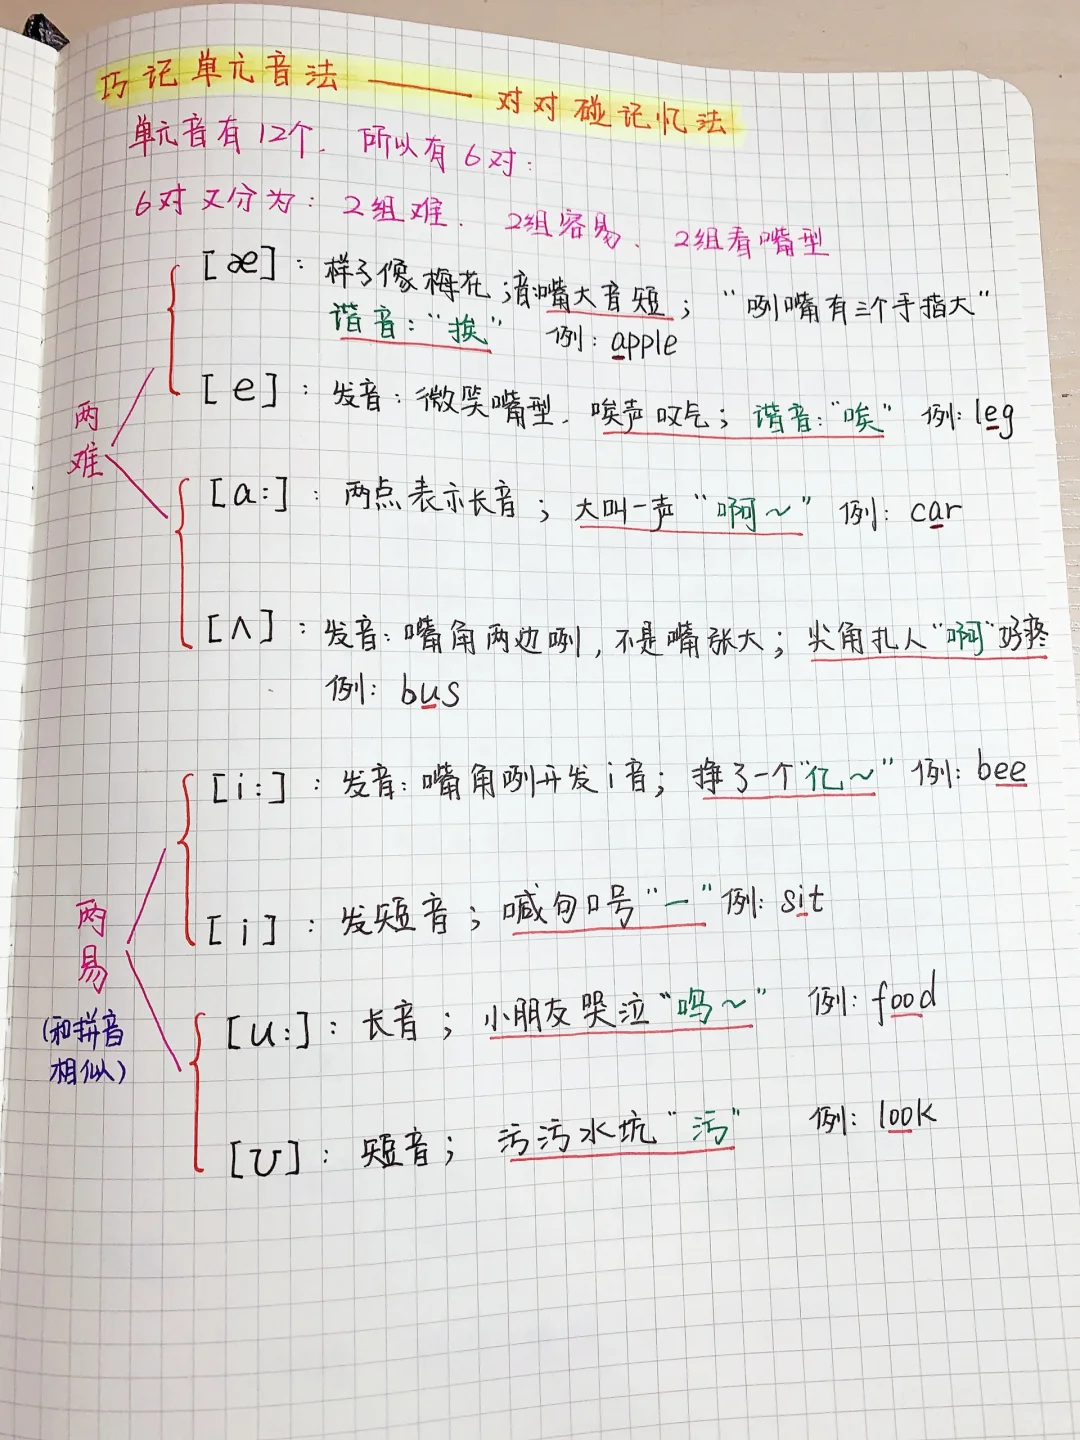 巧记单元音法 —— 对对碰记忆法
单元音有12个. 所以有6对:
6对又分为: 2组难. 2组容易. 2组看嘴型
[æ]: 样子像梅花; 音嘴大音短; “咧嘴有三个手指大”
谐音: “挨” 例: apple
[e]: 发音: 微笑嘴型. 唉声叹气; 谐音: “唉” 例: leg
两难
[a:]: 两点表示长音; 大叫一声“啊~” 例: car
[ʌ]: 发音: 嘴角两边咧, 不是嘴张大; 尖角扎人“啊”好疼
例: bus
[i:]: 发音: 嘴角咧开发i音; 挣了一个“亿~” 例: bee
[i]: 发短音; 喊句口号“一” 例: sit
两易
(和拼音相似)
[u:]: 长音; 小朋友哭泣“呜~” 例: food
[ʊ]: 短音; 污污水坑“污” 例: look